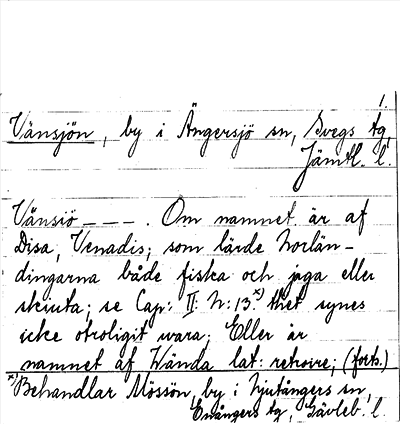 1.
Vänsjön, by i Ängersjö sn, Svegs tg,
Jämtl. l.
Vänsiö – – – . Om namnet är af
Disa, Venadis; som lärde Norlän-
dingarna både fiska och jaga eller
skiuta; se Cap: II. N: 13.x) thet synes
icke otroligit wara; Eller är
namnet af Wända lat: retroire; (forts.)
x) Behandlar Mössön, by i Njutångers sn,
Enångers tg, Gävleb. l.